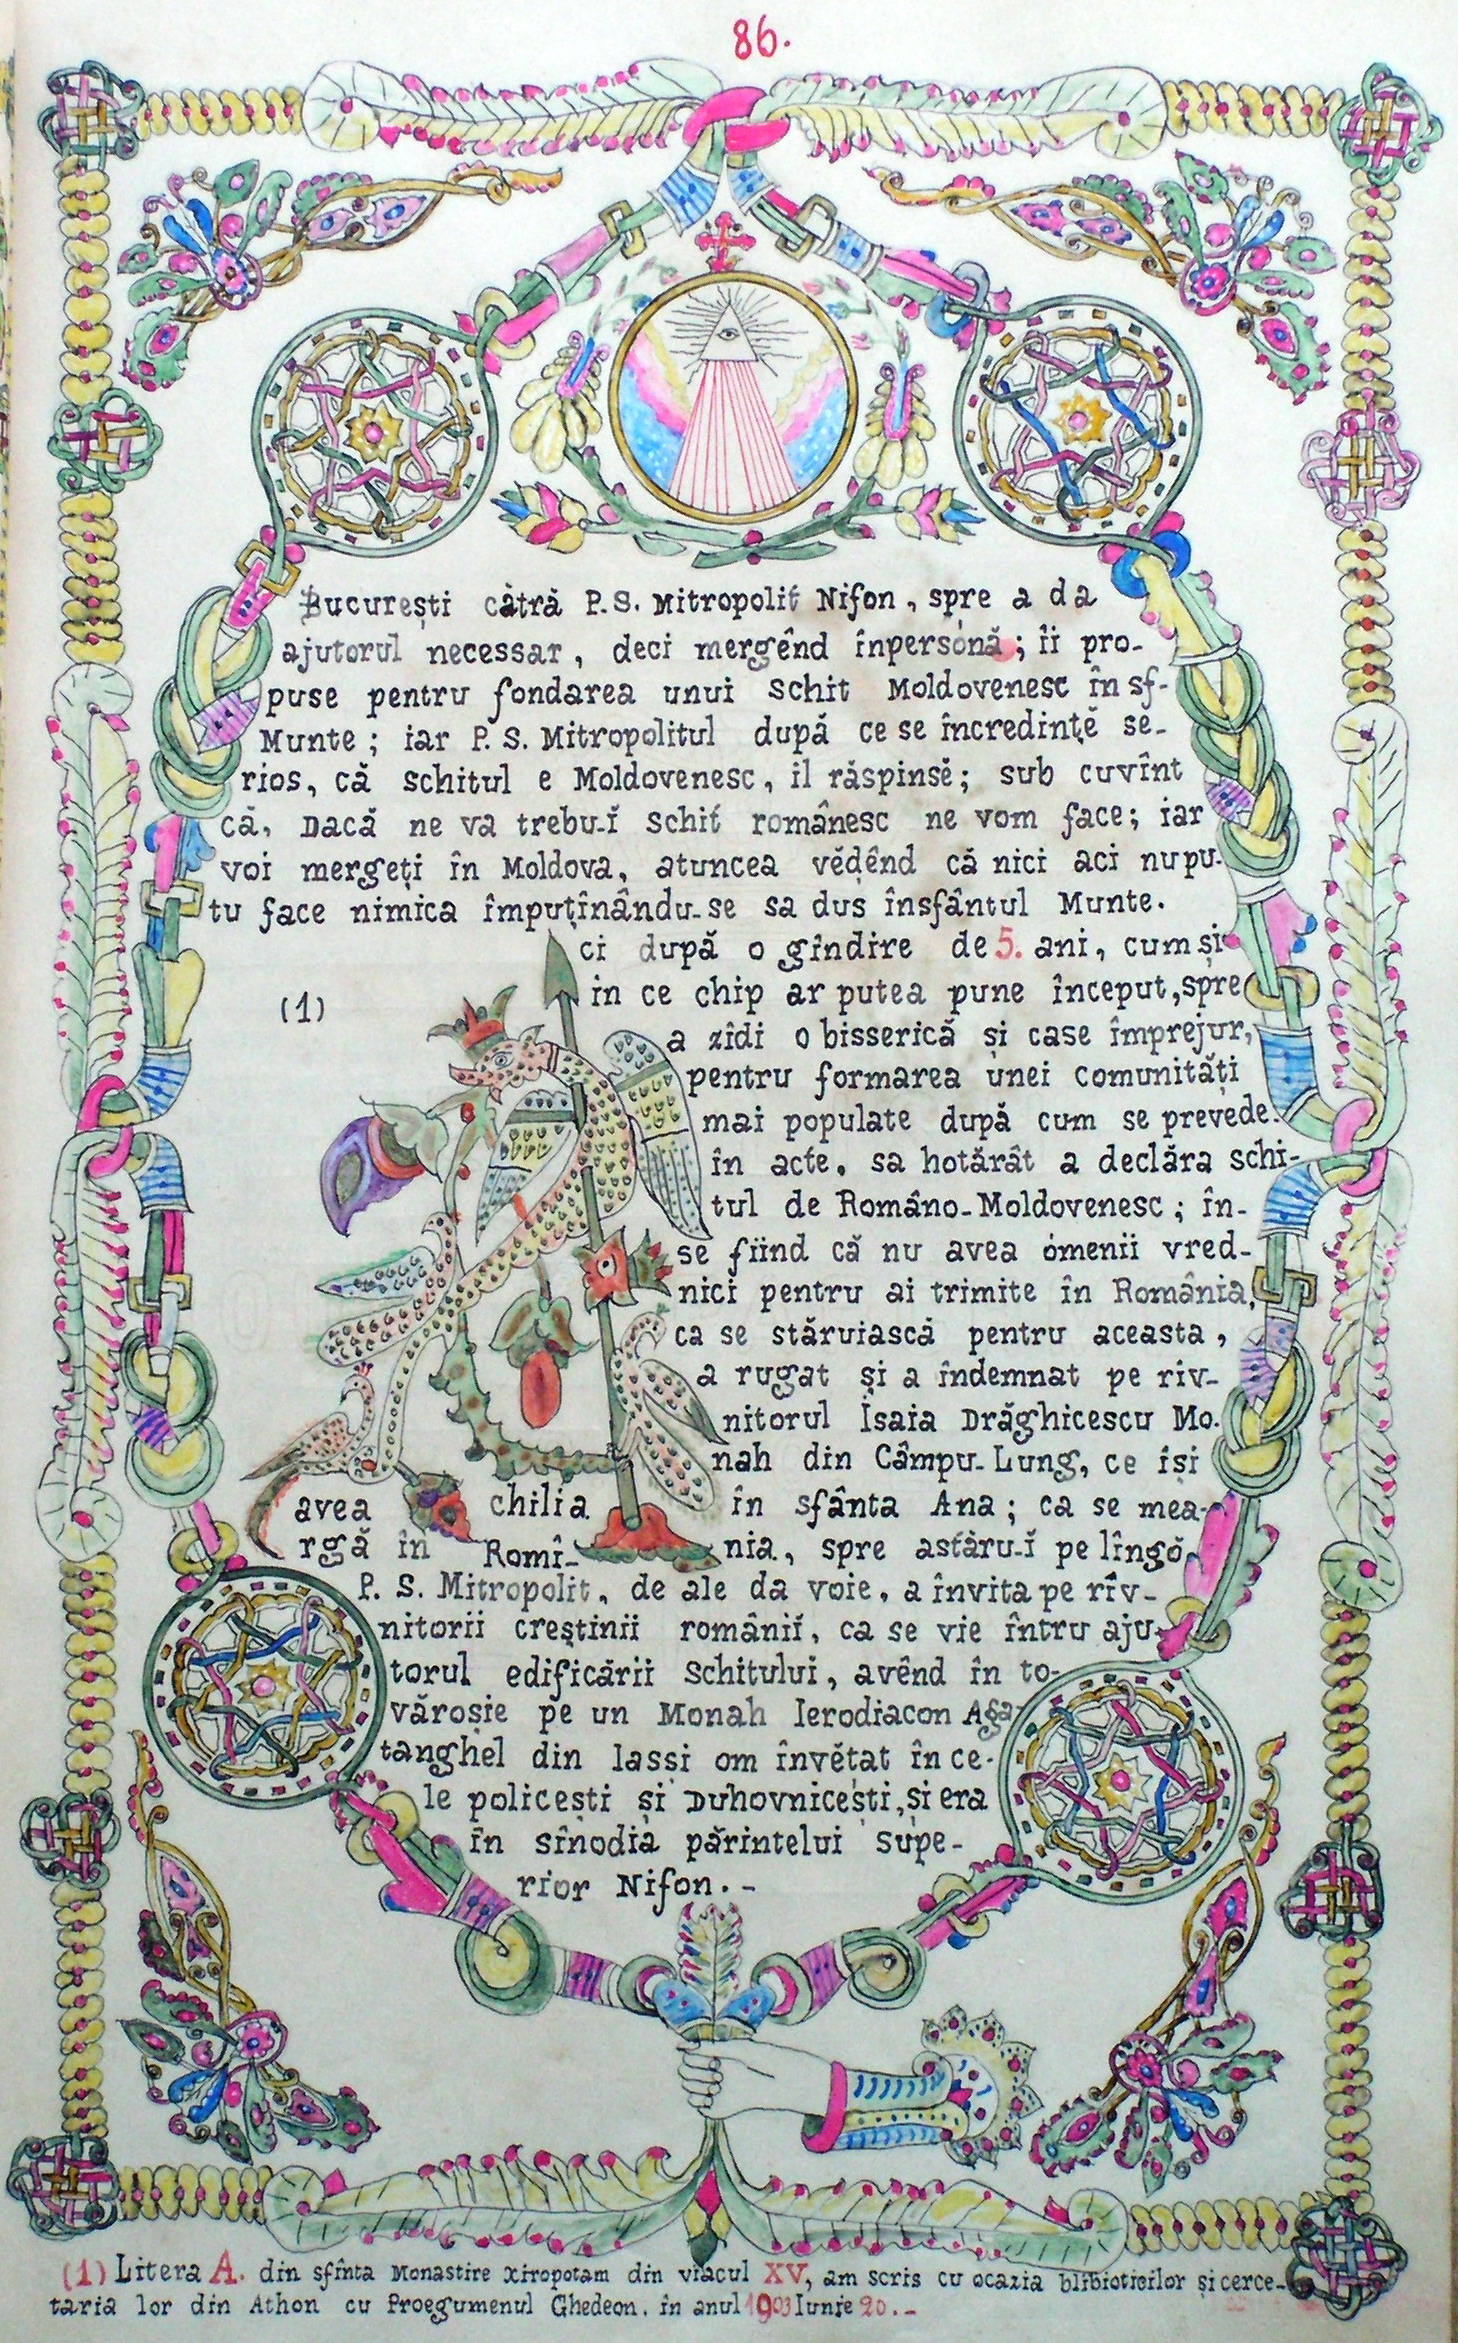 86.
București cătră P.S. Mitropolit Nifon, spre a da
ajutorul necessar, deci mergênd înpersónă; îi pro-
puse pentru fondarea unui schit Moldovenesc în sf-
Munte; iar P.S. Mitropolitul după ce se încredințĕ se-
rios, că schitul e Moldovenesc, il răspinsĕ; sub cuvînt
că, Dacă ne va trebu-ĭ schit românesc ne vom face; iar
voi mergeți în Moldova, atuncea vĕḑênd că nici aci nupu-
tu face nimica împuținându-se sa dus însfântul Munte.
ci după o gîndire de 5. ani, cum și
in ce chip ar putea pune început, spre
(1)
a zîdi o bisserică și case împrejur,
pentru formarea unei comunități
mai populate după cum se prevede.
în acte, sa hotărât a declăra schi-
tul de Româno-Moldovenesc; în-
se fiind că nu avea ómenii vred-
nici pentru ai trimite în România,
ca se stăruiască pentru aceasta,
a rugat și a îndemnat pe riv-
nitorul Isaia Drăghicescu Mo.
nah din Câmpu-Lung, ce își
avea chilia în sfânta Ana; ca se mea-
rgă în Romî- nia, spre astăru-ĭ pe lîngŏ
P. S. Mitropolit, de ale da voie, a învita pe rîv-
nitorii creștinii româniĭ, ca se vie întru aju-
torul edificării Schitului, avênd în to-
văroșie pe un Monah Ierodiacon Aga-
tanghel din Iassi om învĕțat în ce-
le policești și Duhovnicești, și era
în sînodia părintelui supe-
rior Nifon. -
(1) Litera A. din sfînta Monastire Xiropotam din viacul XV, am scris cu ocazia blibioticilor și cerce-
taria lor din Athon cu Proegumenul Ghedeon. in anul 1903 Iunie 20. -